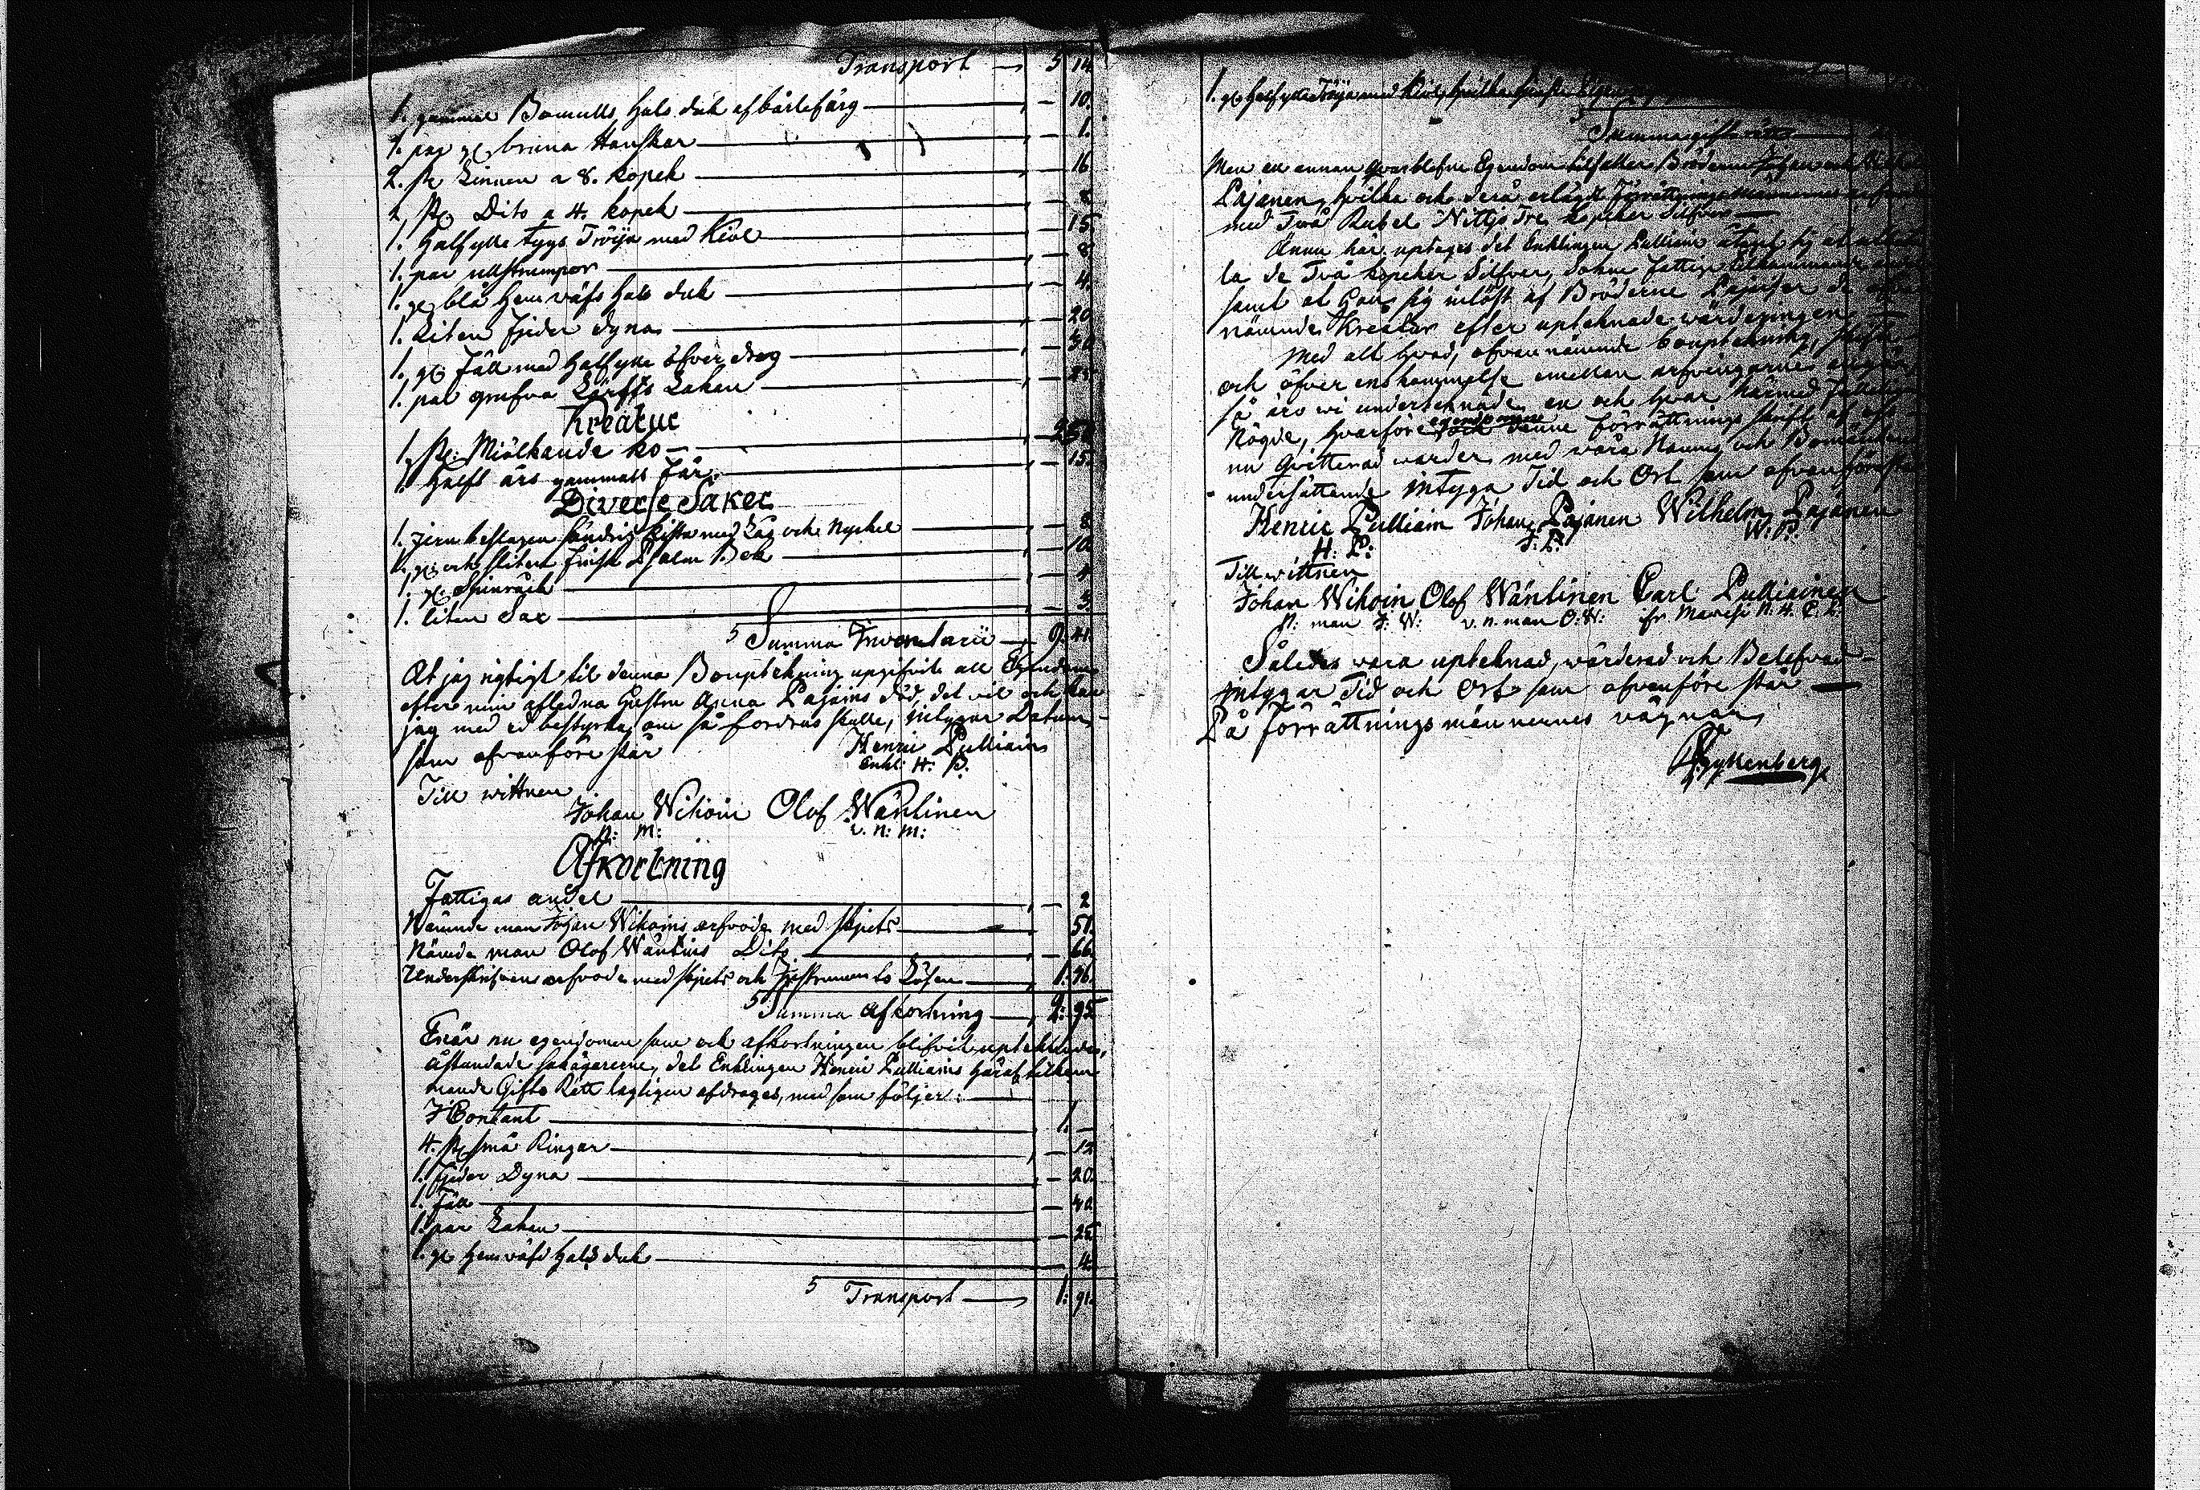 Transport — 5 14.
1. gammal Bomulls Hals duk af bårlefärg — 10.
1. par gl. bruna Hanskar — 1.
2. st. Linnen a 8. kopek — 16
2, st. Dito a 4. kopek — 8
1. Halfylle tygs Tröija med Kiol — 15.
1. par ullstrumpor — 8
1. gl. blå Hemväfs Hals duk — 4.
1. Liten Fjeder dyna — 20
1. gl. Fäll med Halfylle öfver drag — 30
1. par grofva Lakan — 25
Kreatur
1. st. Miölkande ko — 2 50
1. Halft års gammalt Får — 15.
Diverse Saker
1. jern beslagen kista med Lås och Nyckel — 8
1. gl. och sliten Finsk Psalm Bok — 10
1. gl. Spinråck — 4
1. liten Sax — 3.
Summa Inventarii — 9. 41.
At jag rigtigt til denna Bouptekning uppgifvit all Egendom
efter min afledna Hustru Anna Pajains död, det vil och kan
jag med ed bestyrka, om så fordras skulle, intygar Datum
som ofvanföre står Henric Pulliain
Enkl: H. P.
Till wittnen
Johan Wikoin Olof Wäntinen
N: M: v. n: m:
Afkortning
Fattigas andel — 2
Nämnde man Johan Wikoins arfvode med skjuts — 51.
Nämde man Olof Wäntins Dito — 66.
Underskrifvens arfvode med skjuts och Instruments Lösen — 1. 76.
Summa afkortning — 2. 95
Enär nu egendomen som och afkortningen blifvit uptecknade,
åstundade sakägarerne, det Enklingen Henric Pulliains häraf tilkom-
mande Gifto Rätt lagligen afdrages, med som följer: —
I Contant — 1. —
4. st. små Ringar — 12
1. Fjeder Dyna — 20.
1. Fäll — 30
1. par Lakan — 25
1. gl. Hemväfd Hals duk — 4.
Transport — 1: 91.
1. gl. Halfylle Tröija med Kiol, hvilka
Summa giftorätt —
Men en annan qvarblefne Egendom tilfaller Bröderne Johan och
Pajanen, hvilka och desse erlägt Förrättningsmännernes arfvode
med Två Rubel Nittjo Tre kopeker Silfver —
Ännu här uptages det Enklingen Pulliain åtagit sig at
la de Två kopeker Silfver, Sokne fattige
samt at han sig inlöst af Bröderne Pajaner de
nämnde Kreatur efter uptecknade wärderingen —
Med alt hvad, ofvannämnde bouptekning, skifte
och öfver enskommelse emellan arfvingarne
så äro wi underteknade en och hvar härmed
Nögde, hvarföre denne förrättnings skrift af oss
nu qvitterad warder, med våra Namns och Bomärkens
undersättande intyga Tid och Ort som ofvanföre står
Henric Pulliain Johan Pajanen Wilhelm Pajanen
H: P: J: P: W: P:
Till wittnen
Johan Wikoin Olof Wäntinen Carl Pulliainen
N: man J: W: v. n. man O: W:
Således vara uptecknad, wärderad och Belefvad
intygar Tid och Ort som ofvanföre står —
På förrättnings männernes vägnar,